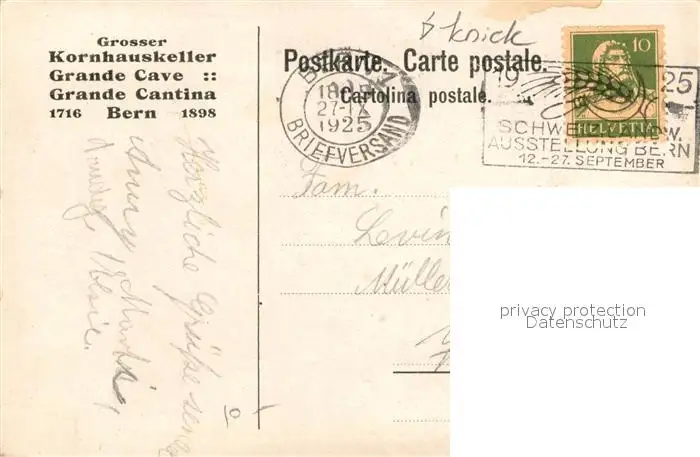 Grosser
Kornhauskeller
Grande Cave ::
Grande Cantina
1716 Bern 1898
Postkarte. Carte postale.
Cartolina postale.
knick
10
HELVETIA
BERN 1
27.IX
1925
BRIEFVERSAND
19 25
SCHWEIZ. LANDW.
AUSSTELLUNG BERN
12.-27. SEPTEMBER
Fam.
Levin
Müller
Herzliche Grüße
privacy protection
Datenschutz